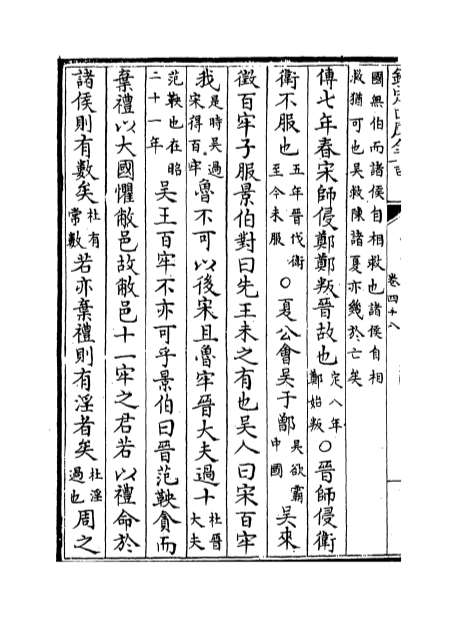 卷四十八
國無伯而諸侯自相救也諸侯自相
救猶可也吳救陳諸夏亦幾於亡矣
傳七年春宋師侵鄭鄭叛晉故也定八年鄭始叛○晉師侵衛
衛不服也五年晉伐衛至今未服○夏公會吳于鄫吳欲霸中國吳來
徵百牢子服景伯對曰先王未之有也吳人曰宋百牢
我是時吳過宋得百牢魯不可以後宋且魯牢晉大夫過十杜晉大夫
范鞅也在昭二十一年吳王百牢不亦可乎景伯曰晉范鞅貪而
棄禮以大國懼敝邑故敝邑十一牢之君若以禮命於
諸侯則有數矣杜有常數若亦棄禮則有淫者矣杜淫過也周之